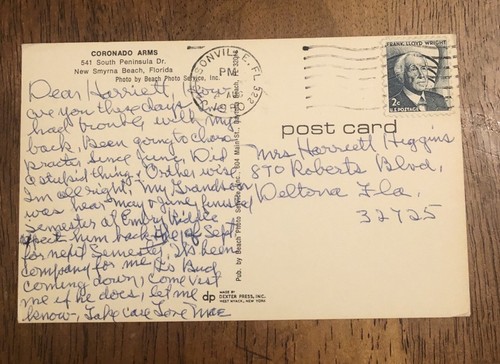 CORONADO ARMS
541 South Peninsula Dr.
New Smyrna Beach, Florida
Photo by Beach Photo Service, Inc.
Dear Harriett, How
are you these days
had trouble with my
back, Been going to chiro
practr since June, Did
a stupid thing. Other wise
I'm all right, My Grandson
was hear May & June finished
semester at Embry Riddle
expect him back the of Sept
for next Semester, It's been
company for me Is Bud
coming down, Come visit
me if he does, let me
know-, Take care Love Mae
Pub. by Beach Photo Service, Inc. Main St., Daytona Beach, Fla.
dp
MADE BY
DEXTER PRESS, INC.
WEST NYACK, NEW YORK
JACKSONVILLE, FL 322
PM
FRANK LLOYD WRIGHT
2c
U.S. POSTAGE
post card
Mrs Harriett Higgins
870 Roberts Blvd,
Deltona Fla,
32725